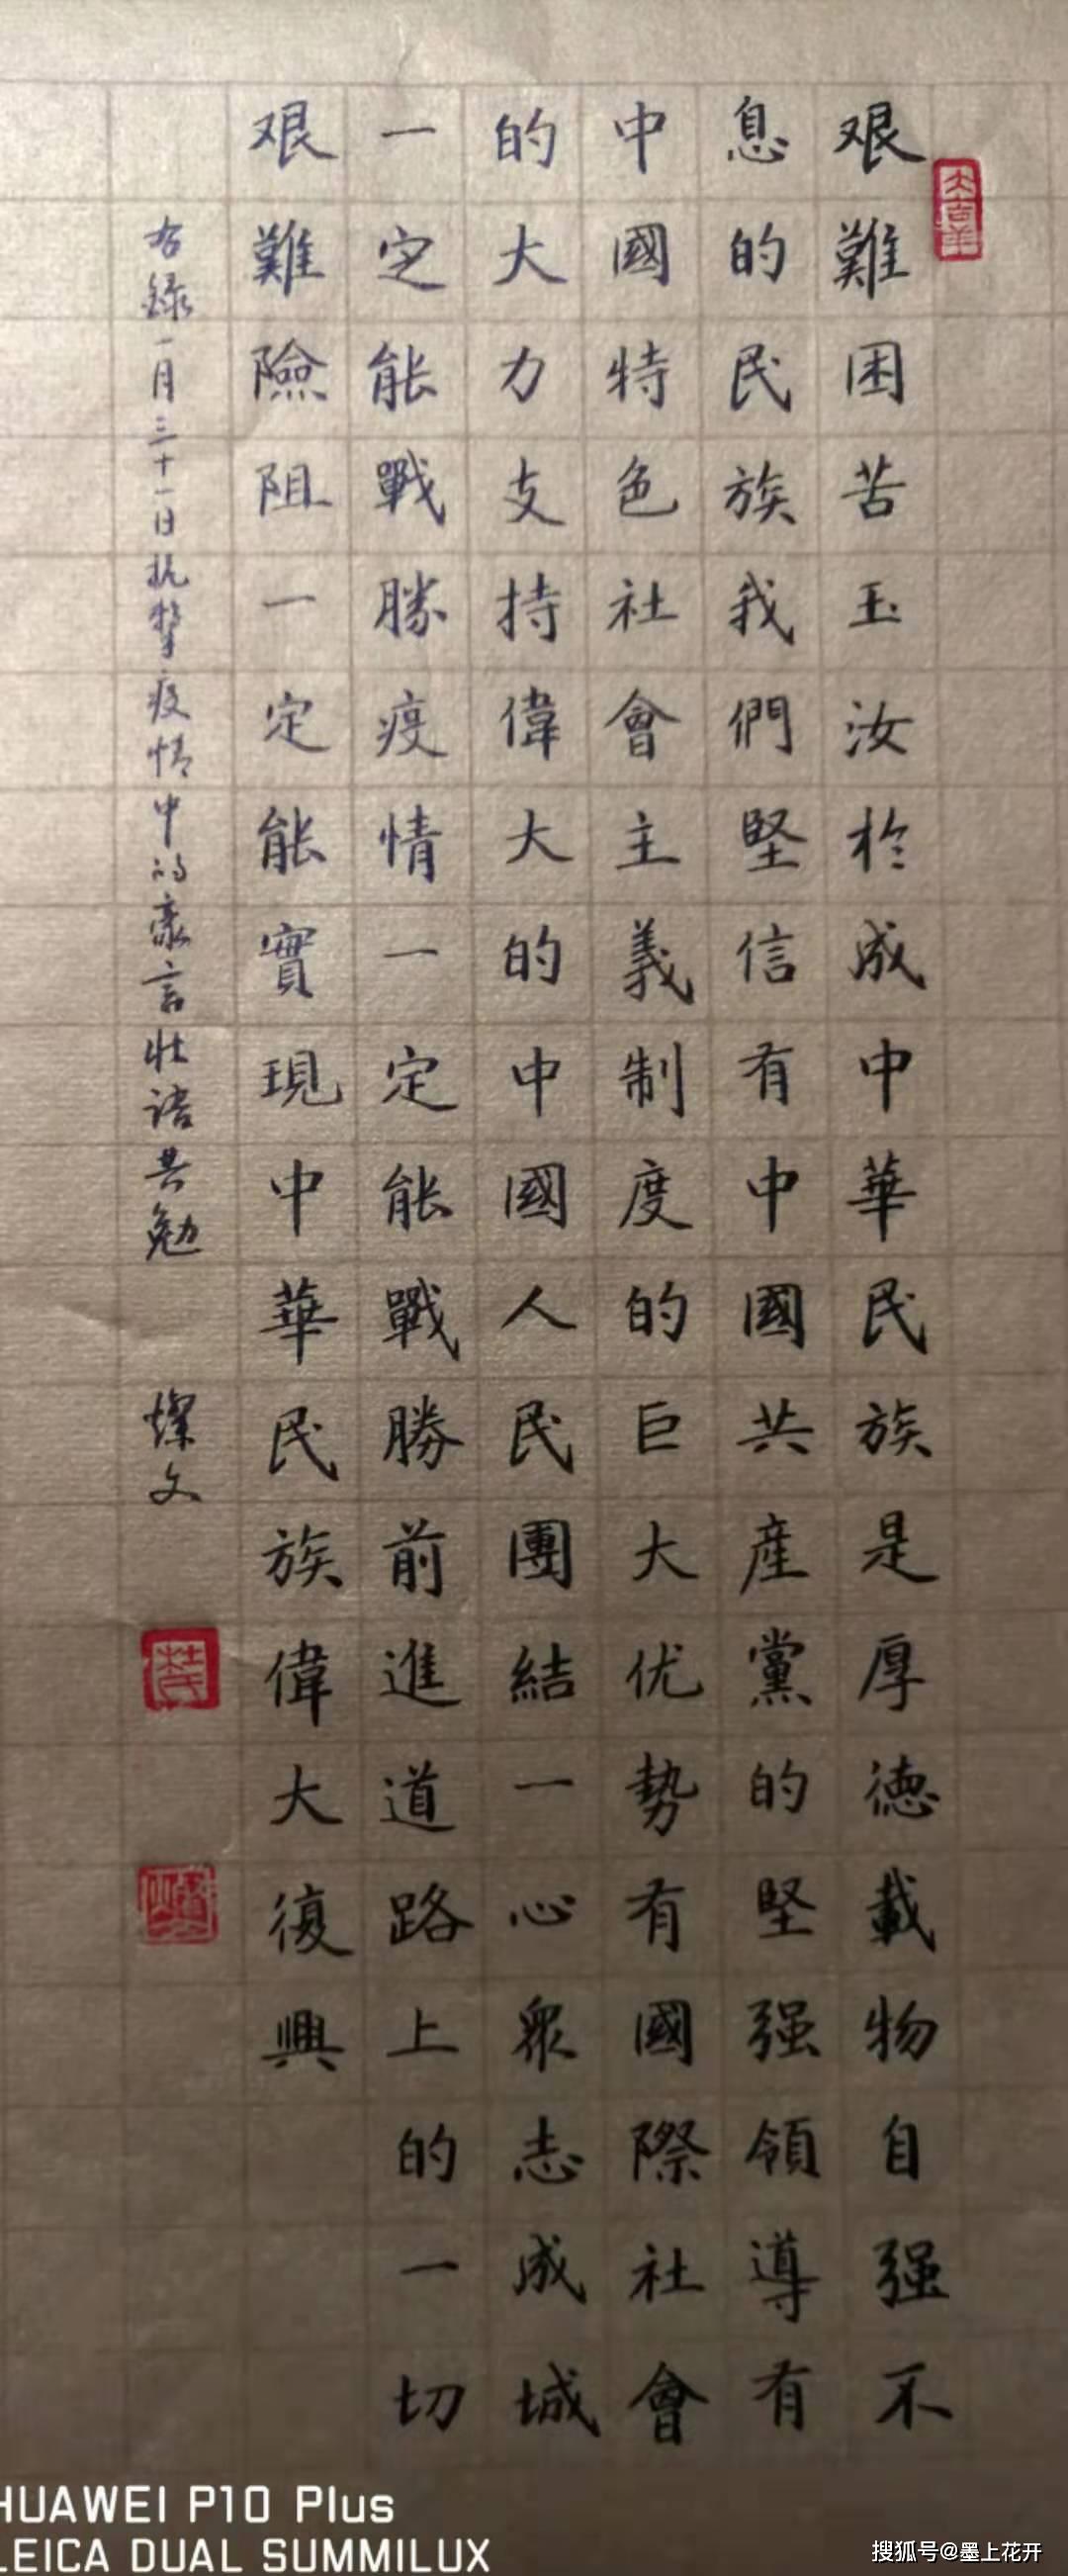 艱難困苦玉汝於成中華民族是厚德載物自强不
息的民族我們堅信有中國共産黨的堅强領導有
中國特色社會主義制度的巨大优勢有國際社會
的大力支持偉大的中國人民團結一心衆志成城
一定能戰勝疫情一定能戰勝前進道路上的一切
艱難險阻一定能實現中華民族偉大復興
右録一月三十一日抗擊疫情中的豪言壯语共勉
燦文
HUAWEI P10 Plus
LEICA DUAL SUMMILUX
搜狐号@墨上花开